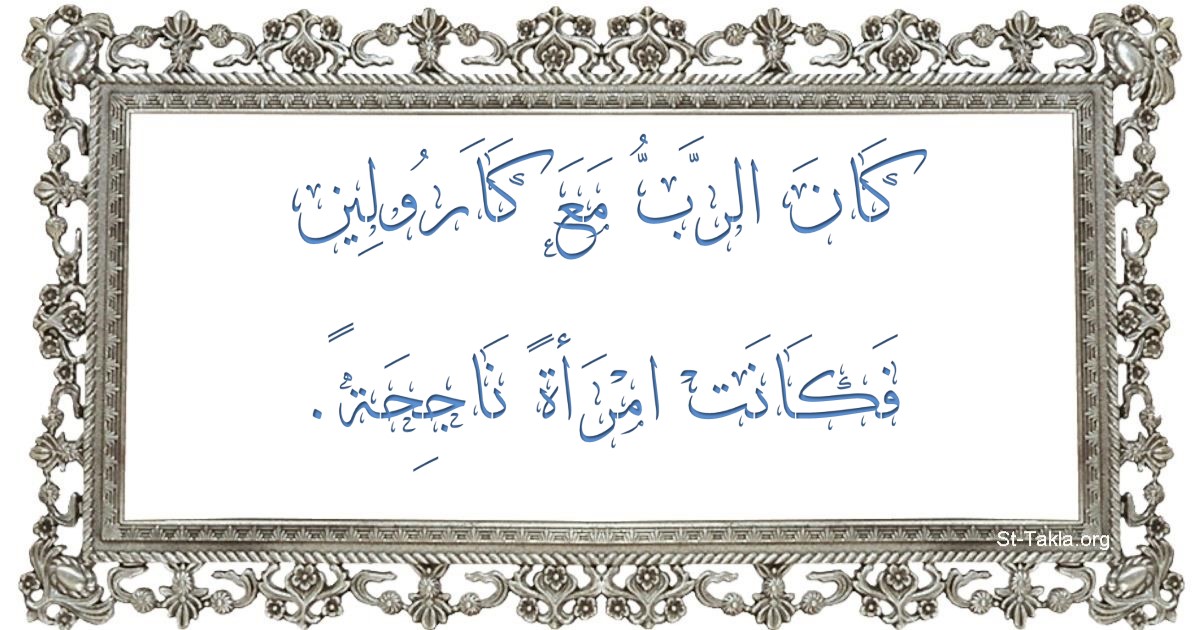 كَانَ الرَّبُّ مَعَ كَارُولِين
فَكَانَت امْرَأَةً نَاجِحَةً.
St-Takla.org